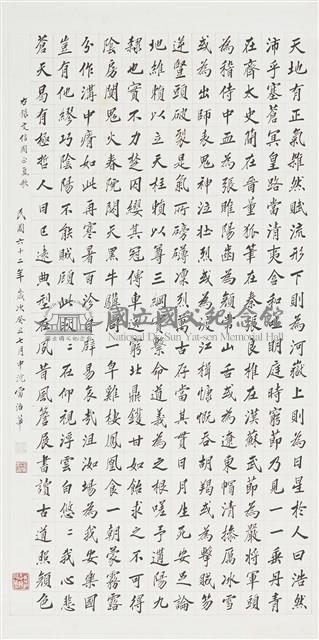 天地有正氣雜然賦流形下則為河嶽上則為日星於人曰浩然
沛乎塞蒼冥皇路當清夷含和吐明庭時窮節乃見一一垂丹青
在齊太史簡在晉董狐筆在秦張良椎在漢蘇武節為嚴將軍頭
為嵇侍中血為張睢陽齒為顏常山舌或為遼東帽清操厲冰雪
或為出師表鬼神泣壯烈或為渡江楫慷慨吞胡羯或為擊賊笏
逆豎頭破裂是氣所磅礴凜烈萬古存當其貫日月生死安足論
地維賴以立天柱賴以尊三綱實繫命道義為之根嗟予遘陽九
隸也實不力楚囚纓其冠傳車送窮北鼎鑊甘如飴求之不可得
陰房闃鬼火春院閟天黑牛驥同一皂雞棲鳳凰食一朝蒙霧露
分作溝中瘠如此再寒暑百沴自辟易哀哉沮洳場為我安樂國
豈有他繆巧陰陽不能賊顧此耿耿在仰視浮雲白悠悠我心悲
蒼天曷有極哲人日已遠典型在夙昔風簷展書讀古道照顏色
右錄文信國公正氣歌
民國六十二年歲次癸丑七月中浣
國立國父紀念館
National Dr. Sun Yat-sen Memorial Hall